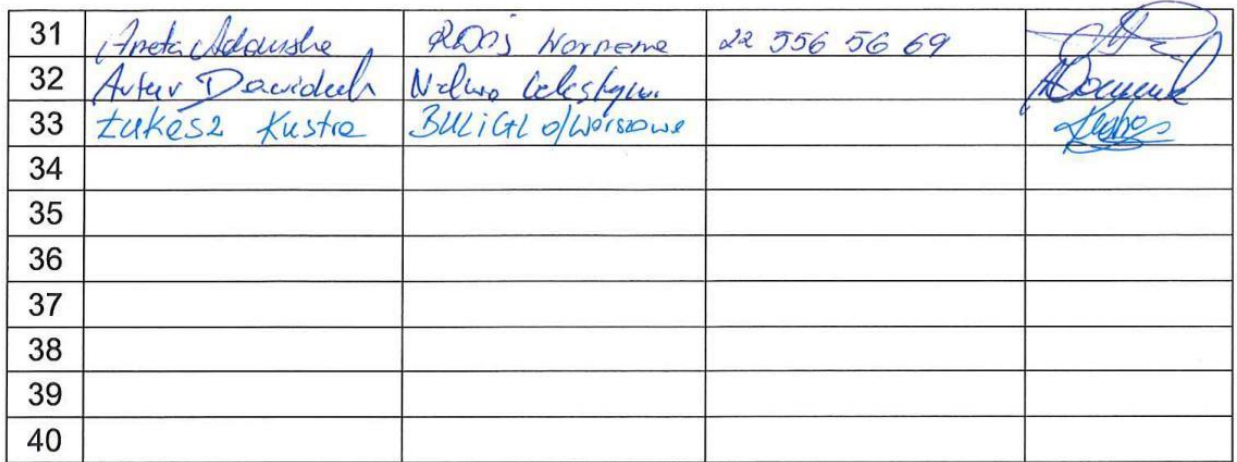 31 Aneta Adamska RDOŚ Warszawa 22 556 56 69
32 Artur Dawidiuk N-ctwo Celestynów
33 Łukasz Kustra BULiGL o/Warszawa
34
35
36
37
38
39
40